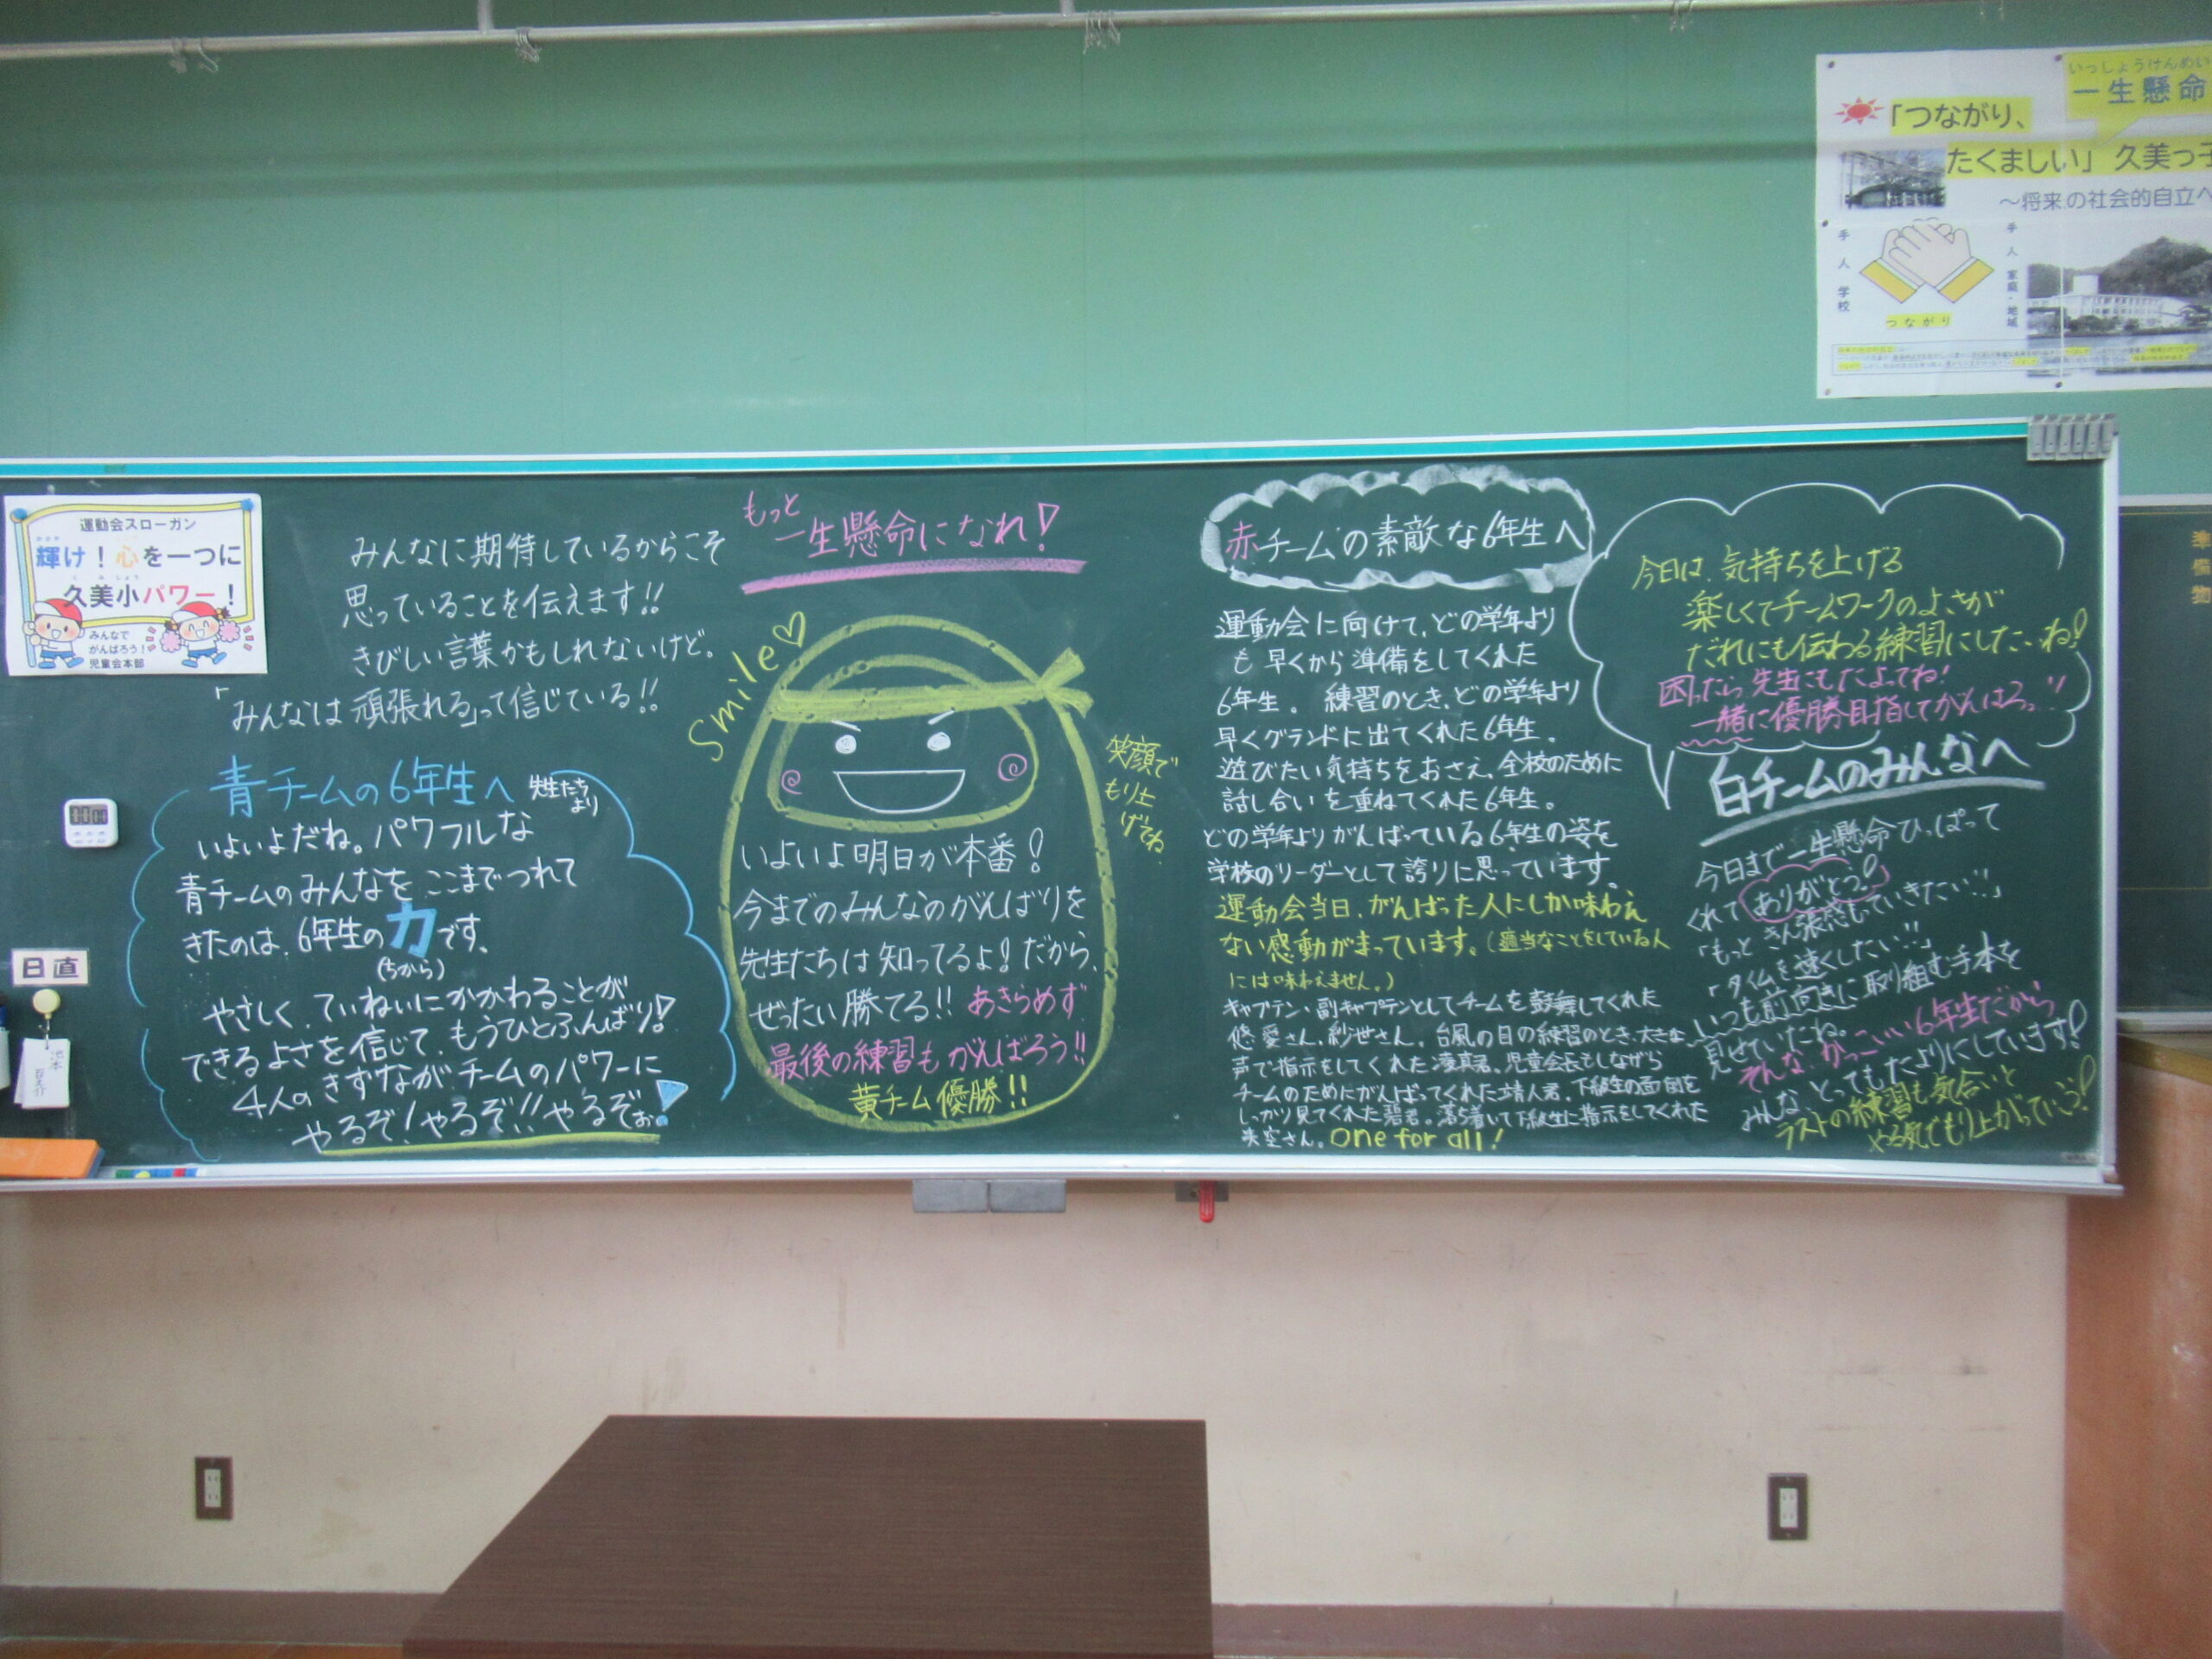 いっしょうけんめい
一生懸命
「つながり、
たくましい」久美っ子
～将来の社会的自立へ
手 人 学校
手 人 家庭・地域
つながり
運動会スローガン
輝け！心を一つに
久美小パワー！
みんなで
がんばろう！
児童会本部
みんなに期待しているからこそ
思っていることを伝えます!!
きびしい言葉かもしれないけど。
「みんなは頑張れる」って信じている!!
青チームの6年生へ 先生たちより
いよいよだね。パワフルな
青チームのみんなを ここまでつれて
きたのは、6年生の力です。
(ちから)
やさしく、ていねいにかかわることが
できるよさを信じて、もうひとふんばり!
4人のきずながチームのパワーに
やるぞ!やるぞ!!やるぞぉ。
日直
もっと
一生懸命になれ!
Smile♡
笑顔で
もり上
げてね
いよいよ明日が本番!
今までのみんなのがんばりを
先生たちは知ってるよ!だから、
ぜったい勝てる!! あきらめず
最後の練習もがんばろう!!
黄チーム優勝!!
赤チームの素敵な6年生へ
運動会に向けて、どの学年より
も早くから準備をしてくれた
6年生。 練習のとき、どの学年より
早くグランドに出てくれた6年生。
遊びたい気持ちをおさえ、全校のために
話し合いを重ねてくれた6年生。
どの学年よりがんばっている6年生の姿を
学校のリーダーとして誇りに思っています。
運動会当日、がんばった人にしか味わえ
ない感動がまっています。(適当なことをしている人
には味わえません。)
キャプテン・副キャプテンとしてチームを鼓舞してくれた
悠愛さん、紗世さん。台風の目の練習のとき、大きな
声で指示をしてくれた 君。児童会長もしながら
チームのためにがんばってくれた 君。下級生の面倒を
しっかり見てくれた碧君。落ち着いて下級生に指示をしてくれた
空さん。One for all!
今日は、気持ちを上げる
楽しくてチームワークのよさが
だれにも伝わる練習にしたいね!
困ったら先生にもたよってね!
一緒に優勝目指してがんばろう!!
白チームのみんなへ
今日まで一生懸命ひっぱって
くれてありがとう!
「もっと きん張感もっていきたい!!」
「タイムを速くしたい!!」
いつも前向きに取り組む手本を
見せていたね。
そんな、かっこいい6年生だから
みんな とってもたよりにしています!
ラストの練習も気合いと
やる気でもり上がっていこう!
準備物